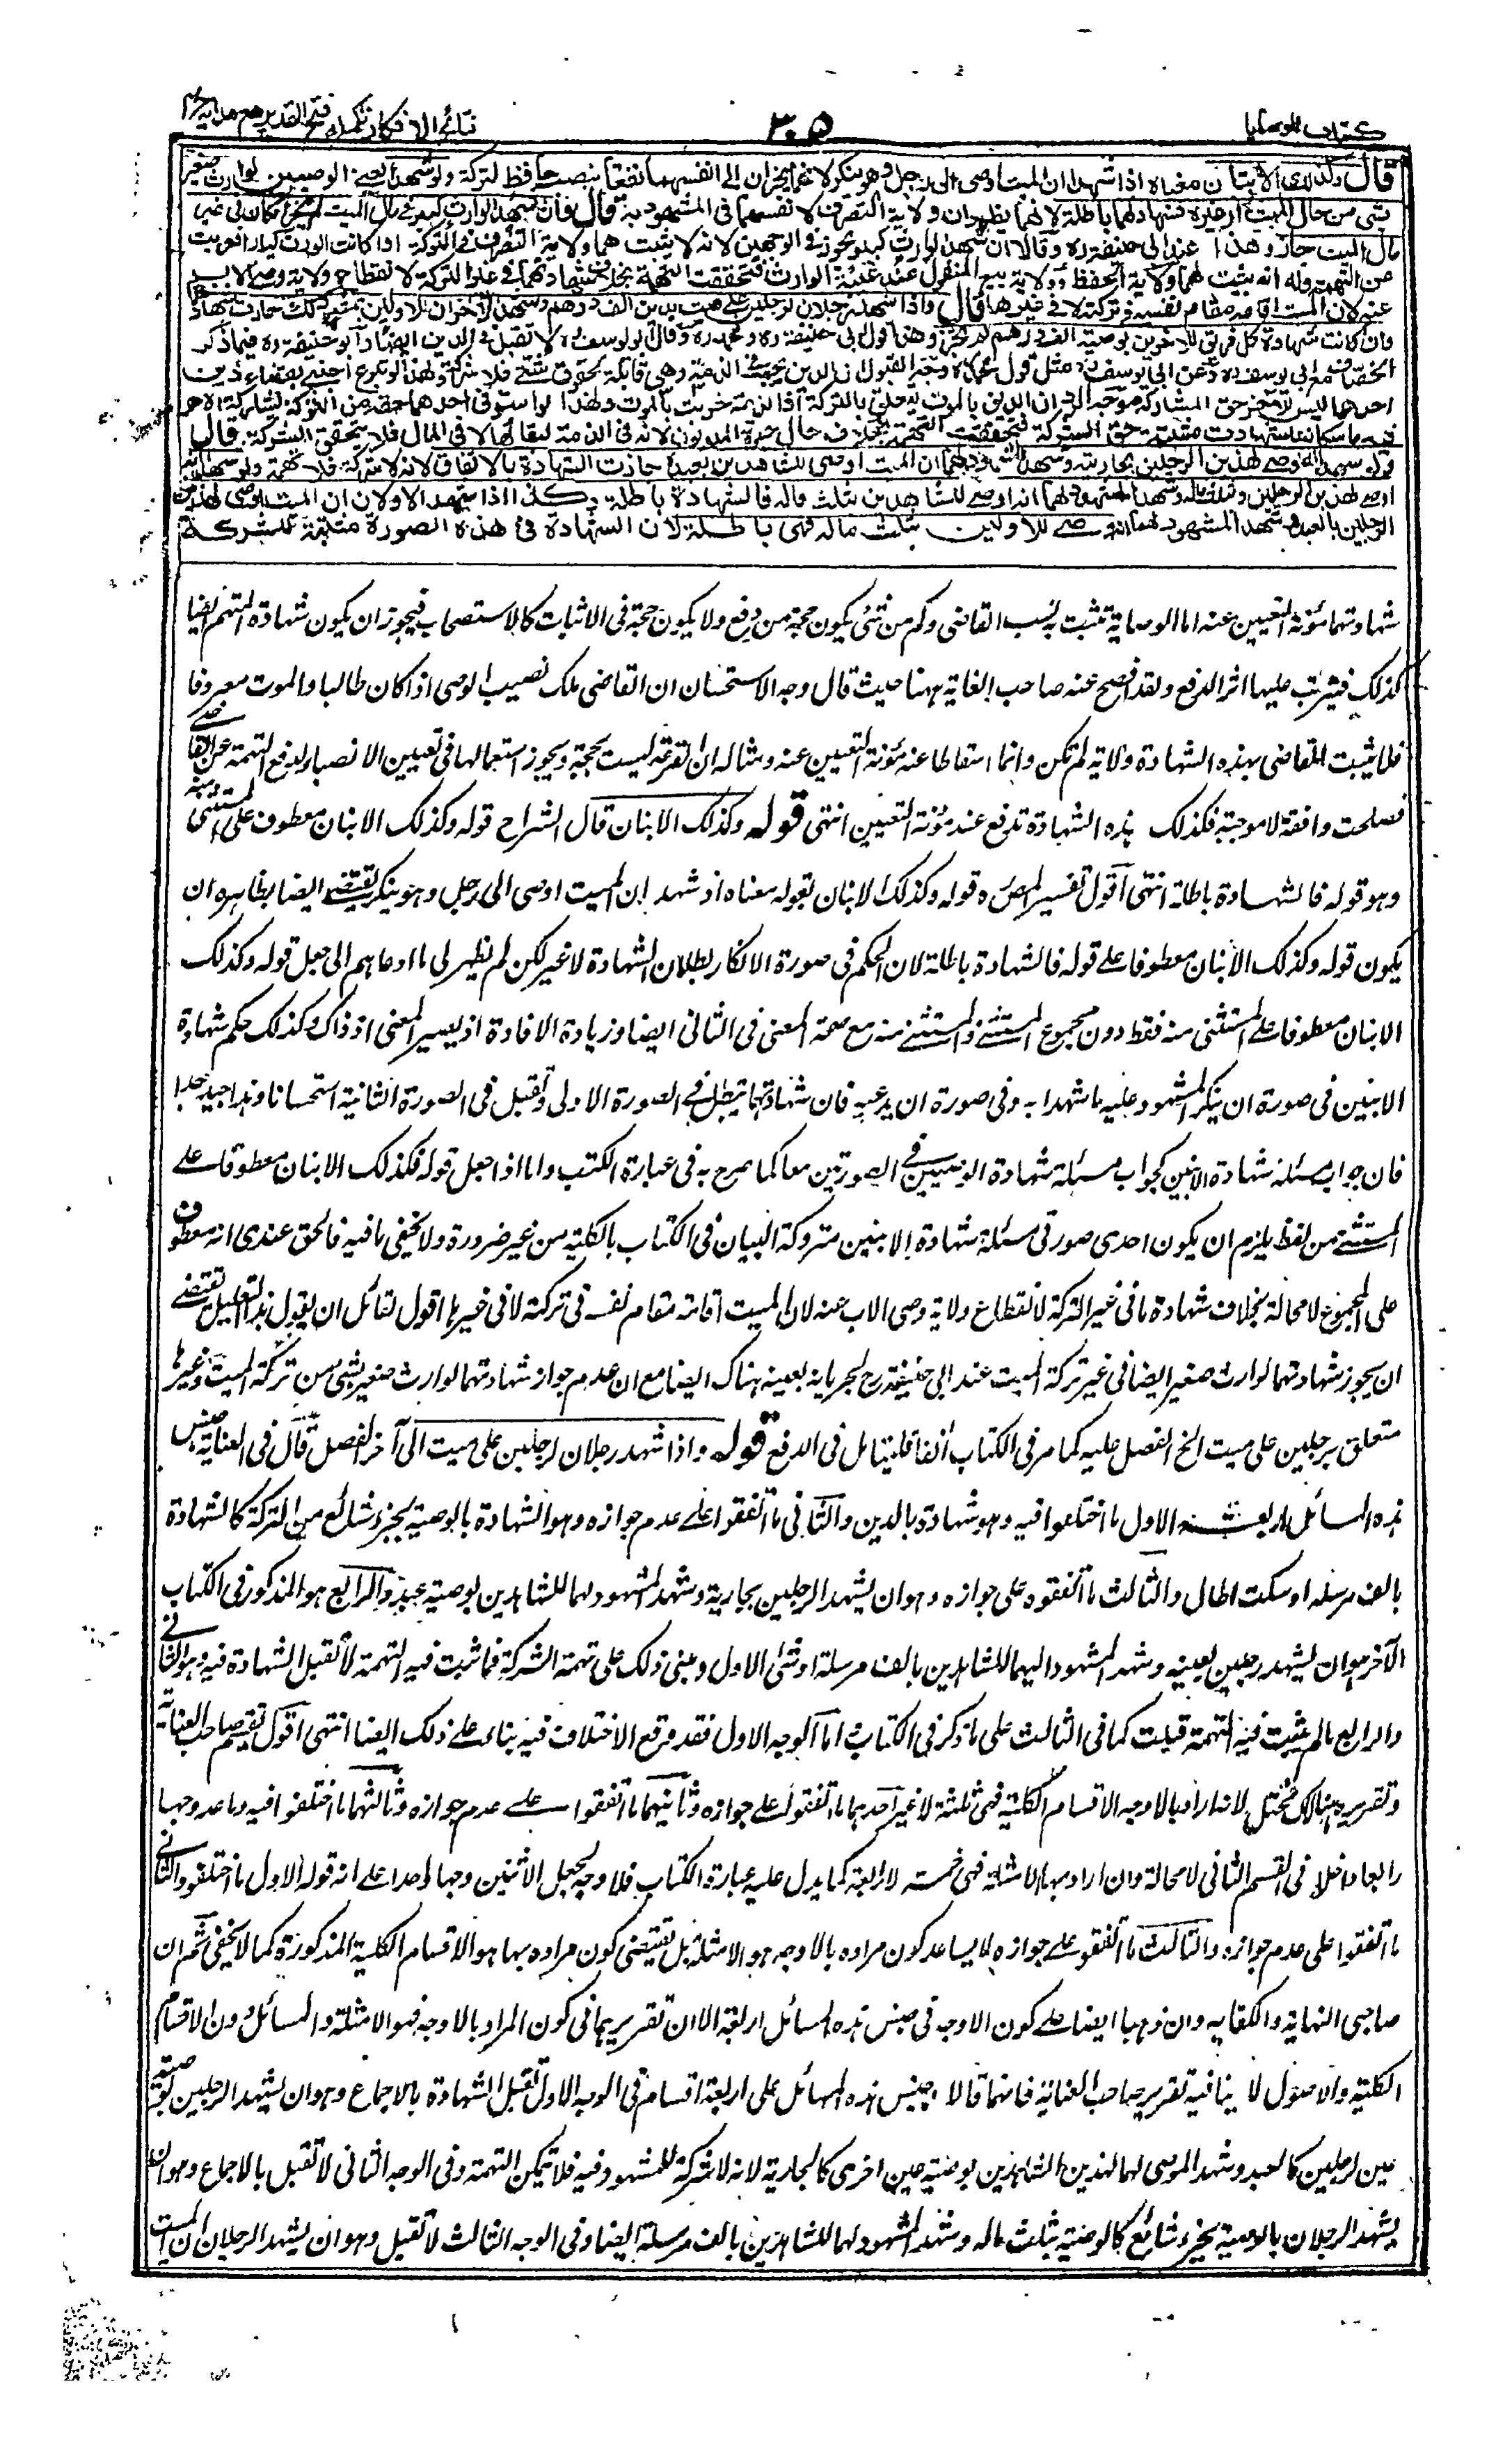 كتاب الوصايا
٣٠٥
نتائج الافكار تكملة فتح القدير مع هداية ج ٤
قال وكذلك الابنان معناه اذا شهدا ان الميت اوصى الى رجل وهو ينكر لانهما يجران الى انفسهما نفعا بنصب حافظ للتركة ولو شهدا يعني الوصيين لوارث صغير
بشئ من مال الميت او غيره فشهادتهما باطلة لانهما يظهران ولاية التصرف لانفسهما في المشهود به قال وان شهدا لوارث كبير في مال الميت لم يجز وان كان في غير
مال الميت جاز وهذا عند ابي حنيفة ره وقالا ان شهدا لوارث كبير يجوز في الوجهين لانه لا يثبت لهما ولاية التصرف في التركة اذا كانت الورثة كبارا فعريت
عن التهمة وله انه يثبت لهما ولاية الحفظ وولاية بيع المنقول عند غيبة الوارث فتحققت التهمة بخلاف شهادتهما في غير التركة لانقطاع ولاية وصي الاب
عنه لان الميت اقامه مقام نفسه في تركته لا في غيرها قال واذا شهد رجلان لرجلين على ميت بدين الف درهم وشهد الآخران للاولين بمثل ذلك جازت شهادتهما
وان كانت شهادة كل فريق للآخرين بوصية الف درهم لم تجز وهذا قول ابي حنيفة ره ومحمد ره وقال ابو يوسف ره لا تقبل في الدين ايضا وابو حنيفة ره فيما ذكر
الخصاف مع ابي يوسف ره وعن ابي يوسف ره مثل قول محمد ره وجه القبول ان الدين يجب في الذمة وهي قابلة لحقوق شتى فلا شركة ولهذا لو تبرع اجنبي بقضاء دين
احدهما ليس للآخر حق المشاركة وجه الرد ان الدين بالموت يتعلق بالتركة اذ الذمة خربت بالموت ولهذا لو استوفى احدهما حقه من التركة يشاركه الآخر
فيه فكانت الشهادة مثبتة حق الشركة فتحققت التهمة بخلاف حال حياة المديون لانه في الذمة لبقائها لا في المال فلا يتحقق الشركة قال
ولو شهدا انه اوصى لهذين الرجلين بجاريته وشهد المشهود لهما ان الميت اوصى للشاهدين بعبده جازت الشهادة بالاتفاق لانه لا شركة فلا تهمة ولو شهدا انه
اوصى لهذين الرجلين بثلث ماله وشهد المشهود لهما انه اوصى للشاهدين بثلث ماله فالشهادة باطلة وكذا اذا شهد الاولان ان الميت اوصى لهذين
الرجلين بالعبد وشهد المشهود لهما انه اوصى للاولين بثلث ماله فهي باطلة لان الشهادة في هذه الصورة مثبتة للشركة
شهادتهما مؤنة التعيين عنه اما الوصاية تثبت بنصب القاضي وكم من شئ يكون حجة من دفع ولا يكون حجة في الاثبات كالاستصحاب فيجوز ان يكون شهادة المتهم ايضا
كذلك فيترتب عليها اثر الدفع ولقد افصح عنه صاحب الغاية ههنا حيث قال وجه الاستحسان ان القاضي ملك نصيب الوصي اذا كان طالبا والموت معروفا
فلا يثبت للقاضي بهذه الشهادة ولاية لم تكن وانما اسقاطا عنه مؤنة التعيين عنه ومثاله ان القرعة ليست بحجة ويجوز استعمالها في تعيين الانصباء لدفع التهمة عن القاضي
فصلحت دافعة لا موجبة فكذلك هذه الشهادة تدفع عنه مؤنة التعيين انتهى قوله وكذلك الابنان قال الشراح قوله وكذلك الابنان معطوف على المستثنى منه
وهو قوله فالشهادة باطلة انتهى اقول تفسير المص ره قوله وكذلك الابنان بقوله معناه اذ شهدا ان الميت اوصى الى رجل وهو ينكر يقتضي ايضا بظاهره ان
يكون قوله وكذلك الابنان معطوفا على قوله فالشهادة باطلة لان الحكم في صورة الانكار بطلان الشهادة لا غير لكن لم يظهر لي ما دعاهم الى جعل قوله وكذلك
الابنان معطوفا على المستثنى منه فقط دون مجموع المستثنى والمستثنى منه مع صحة المعنى في الثاني ايضا وزيادة الافادة اذ يصير المعنى اذ ذاك وكذلك حكم شهادة
الابنين في صورة ان ينكر المشهود عليه ما شهدا به وفي صورة ان يدعيه فان شهادتهما تبطل في الصورة الاولى وتقبل في الصورة الثانية استحسانا وهذا جيد جدا
فان جواب مسئلة شهادة الابنين كجواب مسئلة شهادة الوصيين في الصورتين معا كما صرح به في عبارة الكتب واما اذا جعل قوله فكذلك الابنان معطوفا على
المستثنى منه فقط يلزم ان يكون احدى صورتي مسئلة شهادة الابنين متروكة البيان في الكتاب بالكلية من غير ضرورة ولا يخفى ما فيه فالحق عندي انه معطوف
على المجموع لا محالة بخلاف شهادة ما في غير التركة لانقطاع ولاية وصي الاب عنه لان الميت اقامه مقام نفسه في تركته لا في غيرها اقول لقائل ان يقول هذا التعليل يقتضي
ان يجوز شهادتهما لوارث صغير ايضا في غير تركة الميت عند ابي حنيفة رح لجريانه بعينه هناك ايضا مع ان عدم جواز شهادتهما لوارث صغير بشئ من تركة الميت وغيرها
متعلق برجلين على ميت الخ الفصل عليه كما مر في الكتاب آنفا فليتامل في الدفع قوله واذا شهد رجلان لرجلين على ميت الى آخر الفصل قال في العناية جنس
هذه المسائل اربعة الاول ما اختلفوا فيه وهو شهادة بالدين والثاني ما اتفقوا على عدم جوازه وهو الشهادة بالوصية بجزء شائع من التركة كالشهادة
بالف مرسلة او بثلث المال والثالث ما اتفقوا على جوازه وهو ان يشهد الرجلين بجارية وشهد المشهود لهما للشاهدين بوصية عبد والرابع هو المذكور في الكتاب
الآخر هو ان يشهد رجلين بعينه وشهد المشهود لهما للشاهدين بالف مرسلة او ثلث الاول ومبنى ذلك على تهمة الشركة فما ثبت فيه التهمة لا تقبل الشهادة فيه وهو الثاني
والرابع ما لم يثبت فيه التهمة قبلت كما في الثالث على ما ذكر في الكتاب اما الوجه الاول فقد وقع الاختلاف فيه بناء على ذلك ايضا انتهى اقول تقسيم صاحب العناية
وتقريره هنالك مختل لانه ان اراد بالاوجه الاقسام الكلية فهي ثلثة لا غير احدها ما اتفقوا على جوازه وثانيهما ما اتفقوا على عدم جوازه وثالثهما ما اختلفوا فيه وما عدوجها
رابعا داخل في القسم الثاني لا محالة وان اراد بها الامثلة فهي خمسة لا اربعة كما يدل عليه عبارة الكتاب فلا وجه لجعل الاثنين وجها واحدا على انه قوله الاول ما اختلفوا والثاني
ما اتفقوا على عدم جوازه والثالث ما اتفقوا على جوازه لا يساعد كون مراده بالاوجه هو الامثلة بل يقتضي كون مراده بها هو الاقسام الكلية المذكورة كما لا يخفى ثم ان
صاحبي النهاية والكفاية وان ذهبا ايضا على كون الاوجه في جنس هذه المسائل اربعة الا ان تقريرهما في كون المراد بالاوجه هو الامثلة والمسائل دون الاقسام
الكلية والاصول لا ينافيه تقرير صاحب العناية فانهما قالا جنس هذه المسائل على اربعة اقسام في الوجه الاول تقبل الشهادة بالاجماع وهو ان يشهد الرجلين بوصية
عين لرجلين كالعبد وشهد الموصى لهما لهذين الشاهدين بوصية عين اخرى كالجارية لانه لا شركة للمشهود فيه فلا تمكن التهمة وفي الوجه الثاني لا تقبل بالاجماع وهو ان
يشهد الرجلان بالوصية بجزء شائع كالوصية بثلث ماله وشهد المشهود لهما للشاهدين بالف مرسلة ايضا وفي الوجه الثالث لا تقبل وهو ان يشهد الرجلان ان الميت